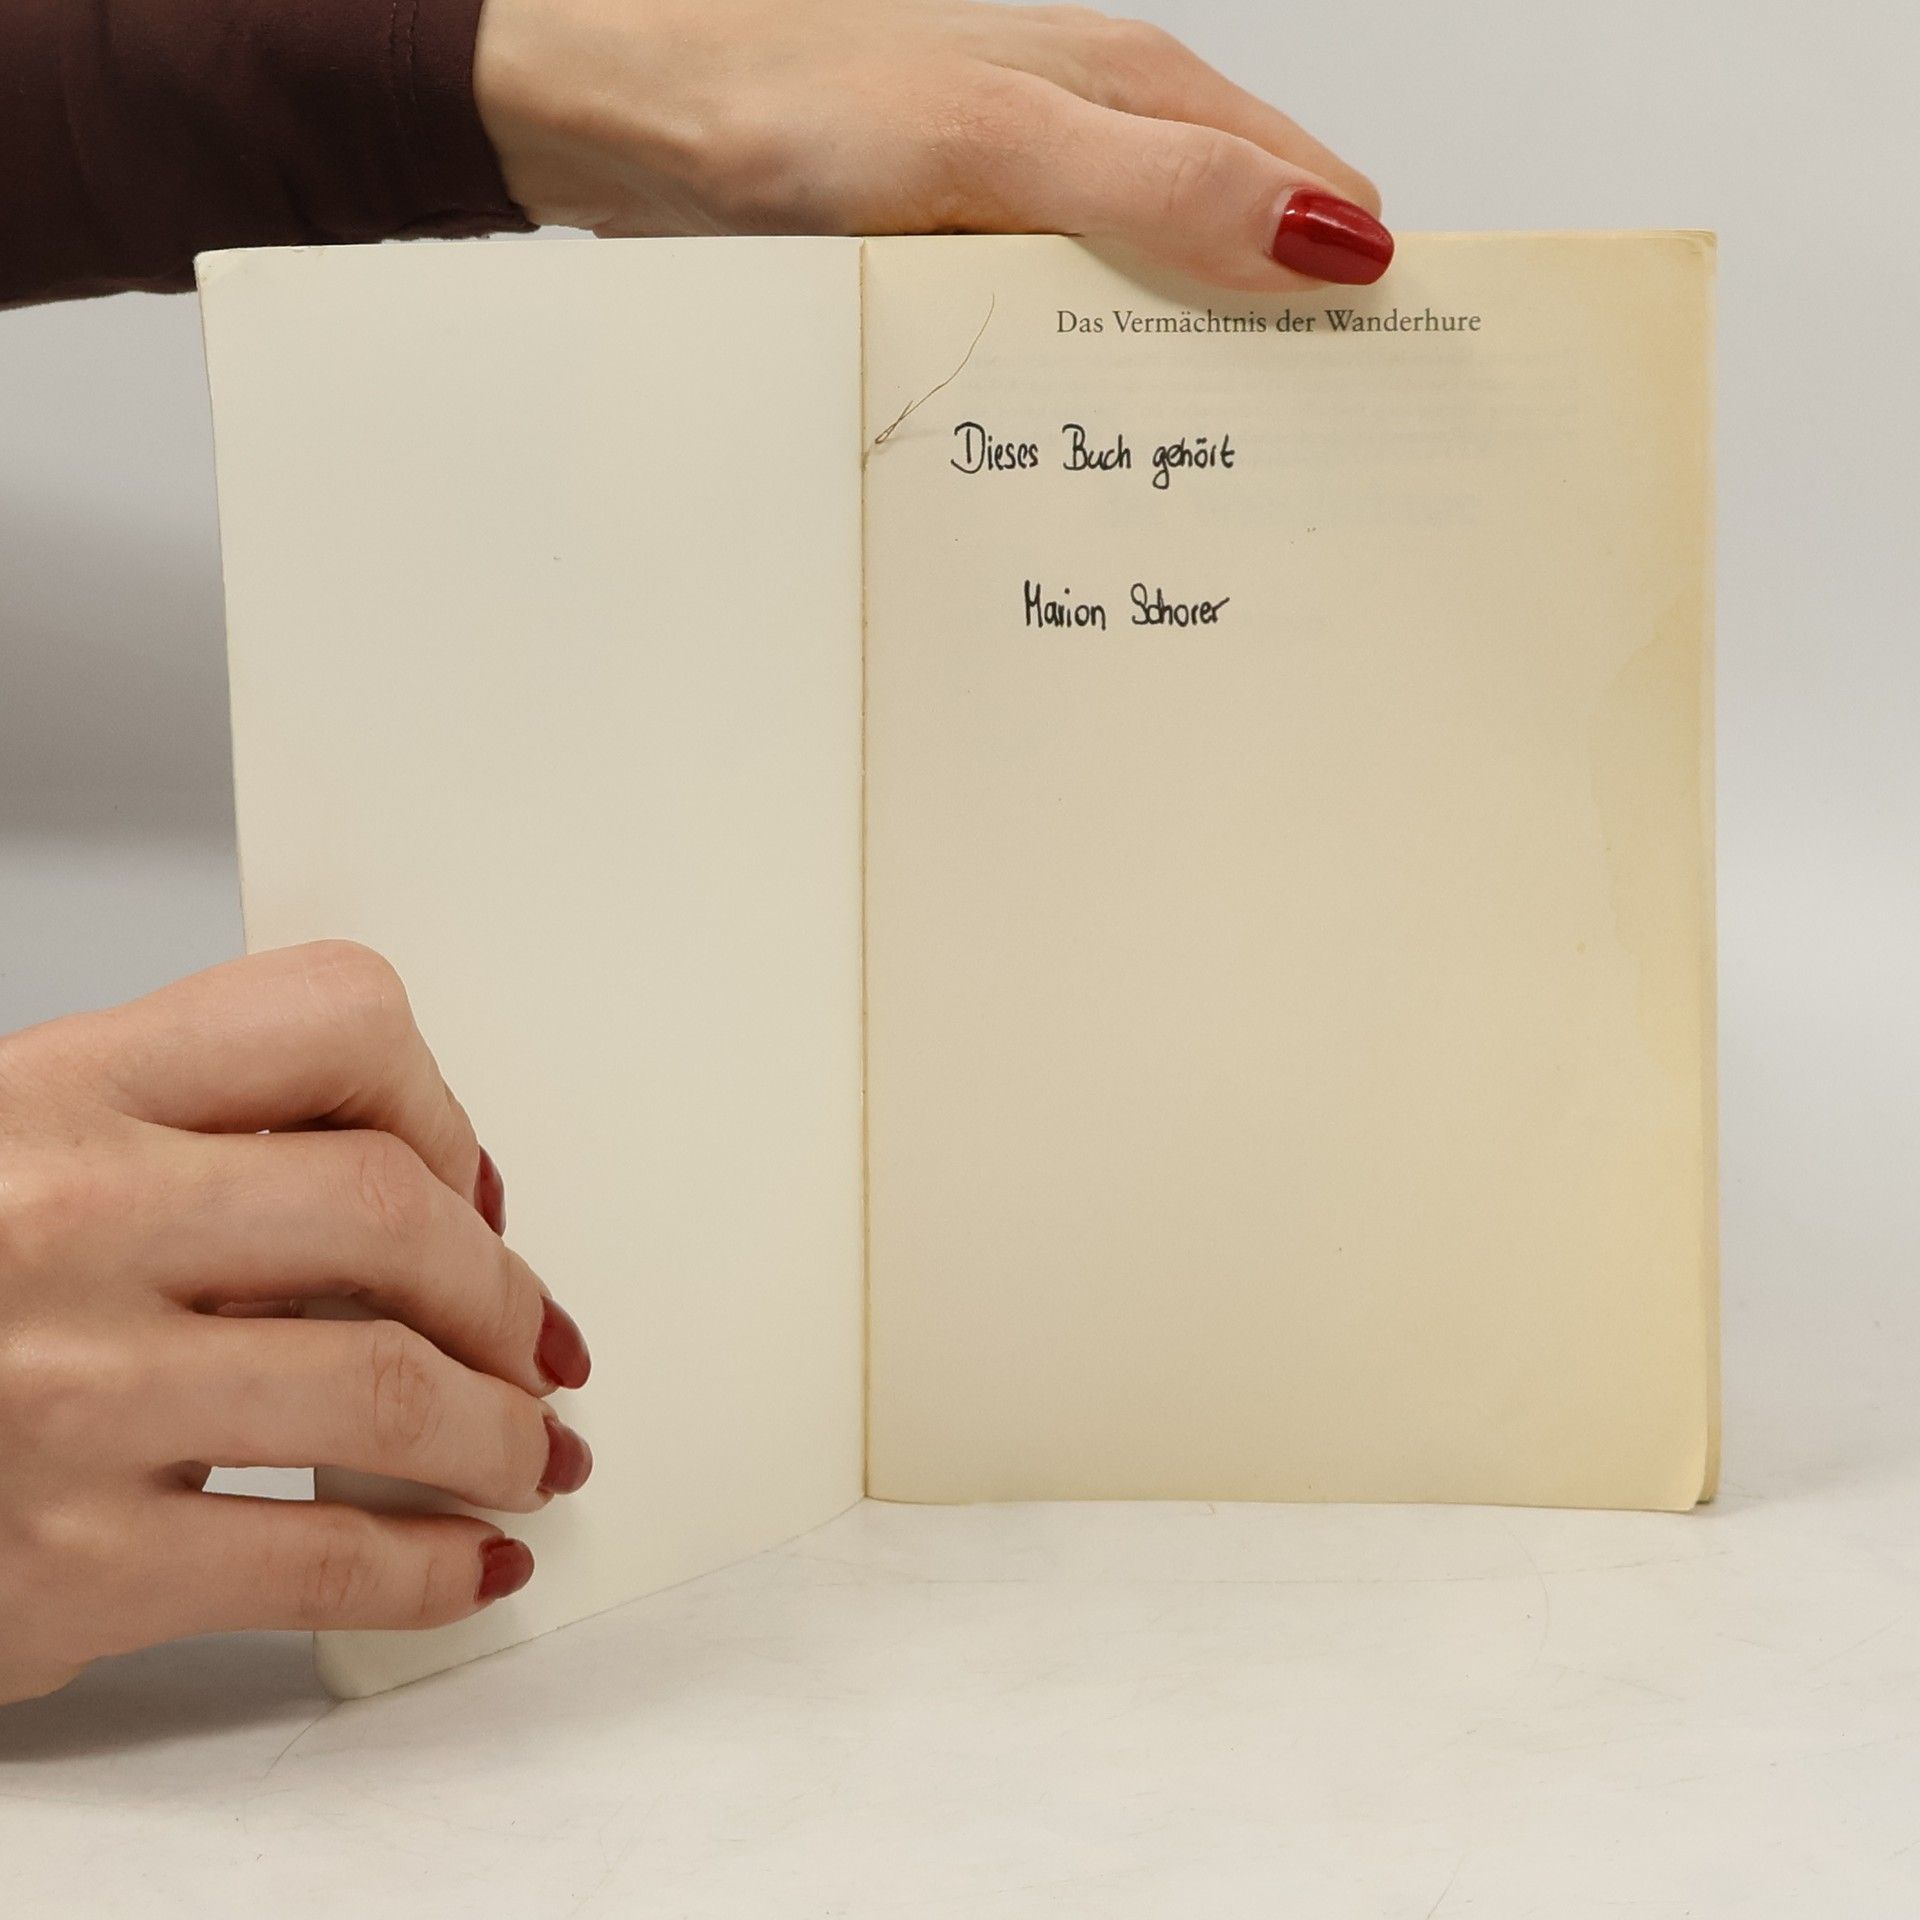 Das Vermächtnis der Wanderhure
Dieses Buch gehört
Marion Schorer